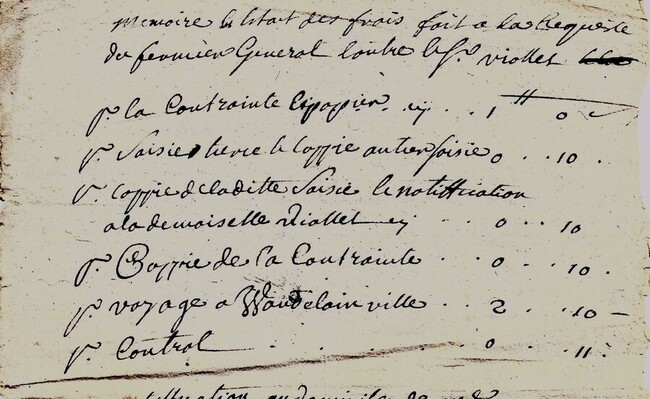 memoire et Estat des frais fait a la Requeste
du fermier General Contre le Sr. viollet
pr. la Contrainte et papier cy . . 1 " 0
pr. Saisie tierce et Coppie au tier saisie 0 . . 10 .
pr. coppie de laditte Saisie et notiffication
a la demoiselle viollet cy . . 0 . . 10
pr. Coppie de la Contrainte . . 0 . . 10 .
pr. voyage a Waudelainville . . 2 . . 10 -
pr. Control . . . . . 0 . . 11 .
au domicile de